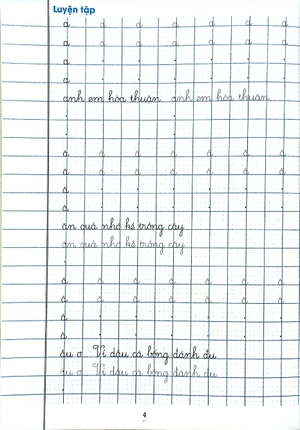 Luyện tập
a a a a a a a
a a a a a a a
a
a
anh em hòa thuận anh em hòa thuận
ă ă ă ă ă ă ă
ă ă ă ă ă ă ă
ă
ă
ăn quả nhớ kẻ trồng cây
ăn quả nhớ kẻ trồng cây
â â â â â â â
â â â â â â â
â
â
ầu ơ Ví dầu cá bống đánh đu
ầu ơ Ví dầu cá bống đánh đu
4